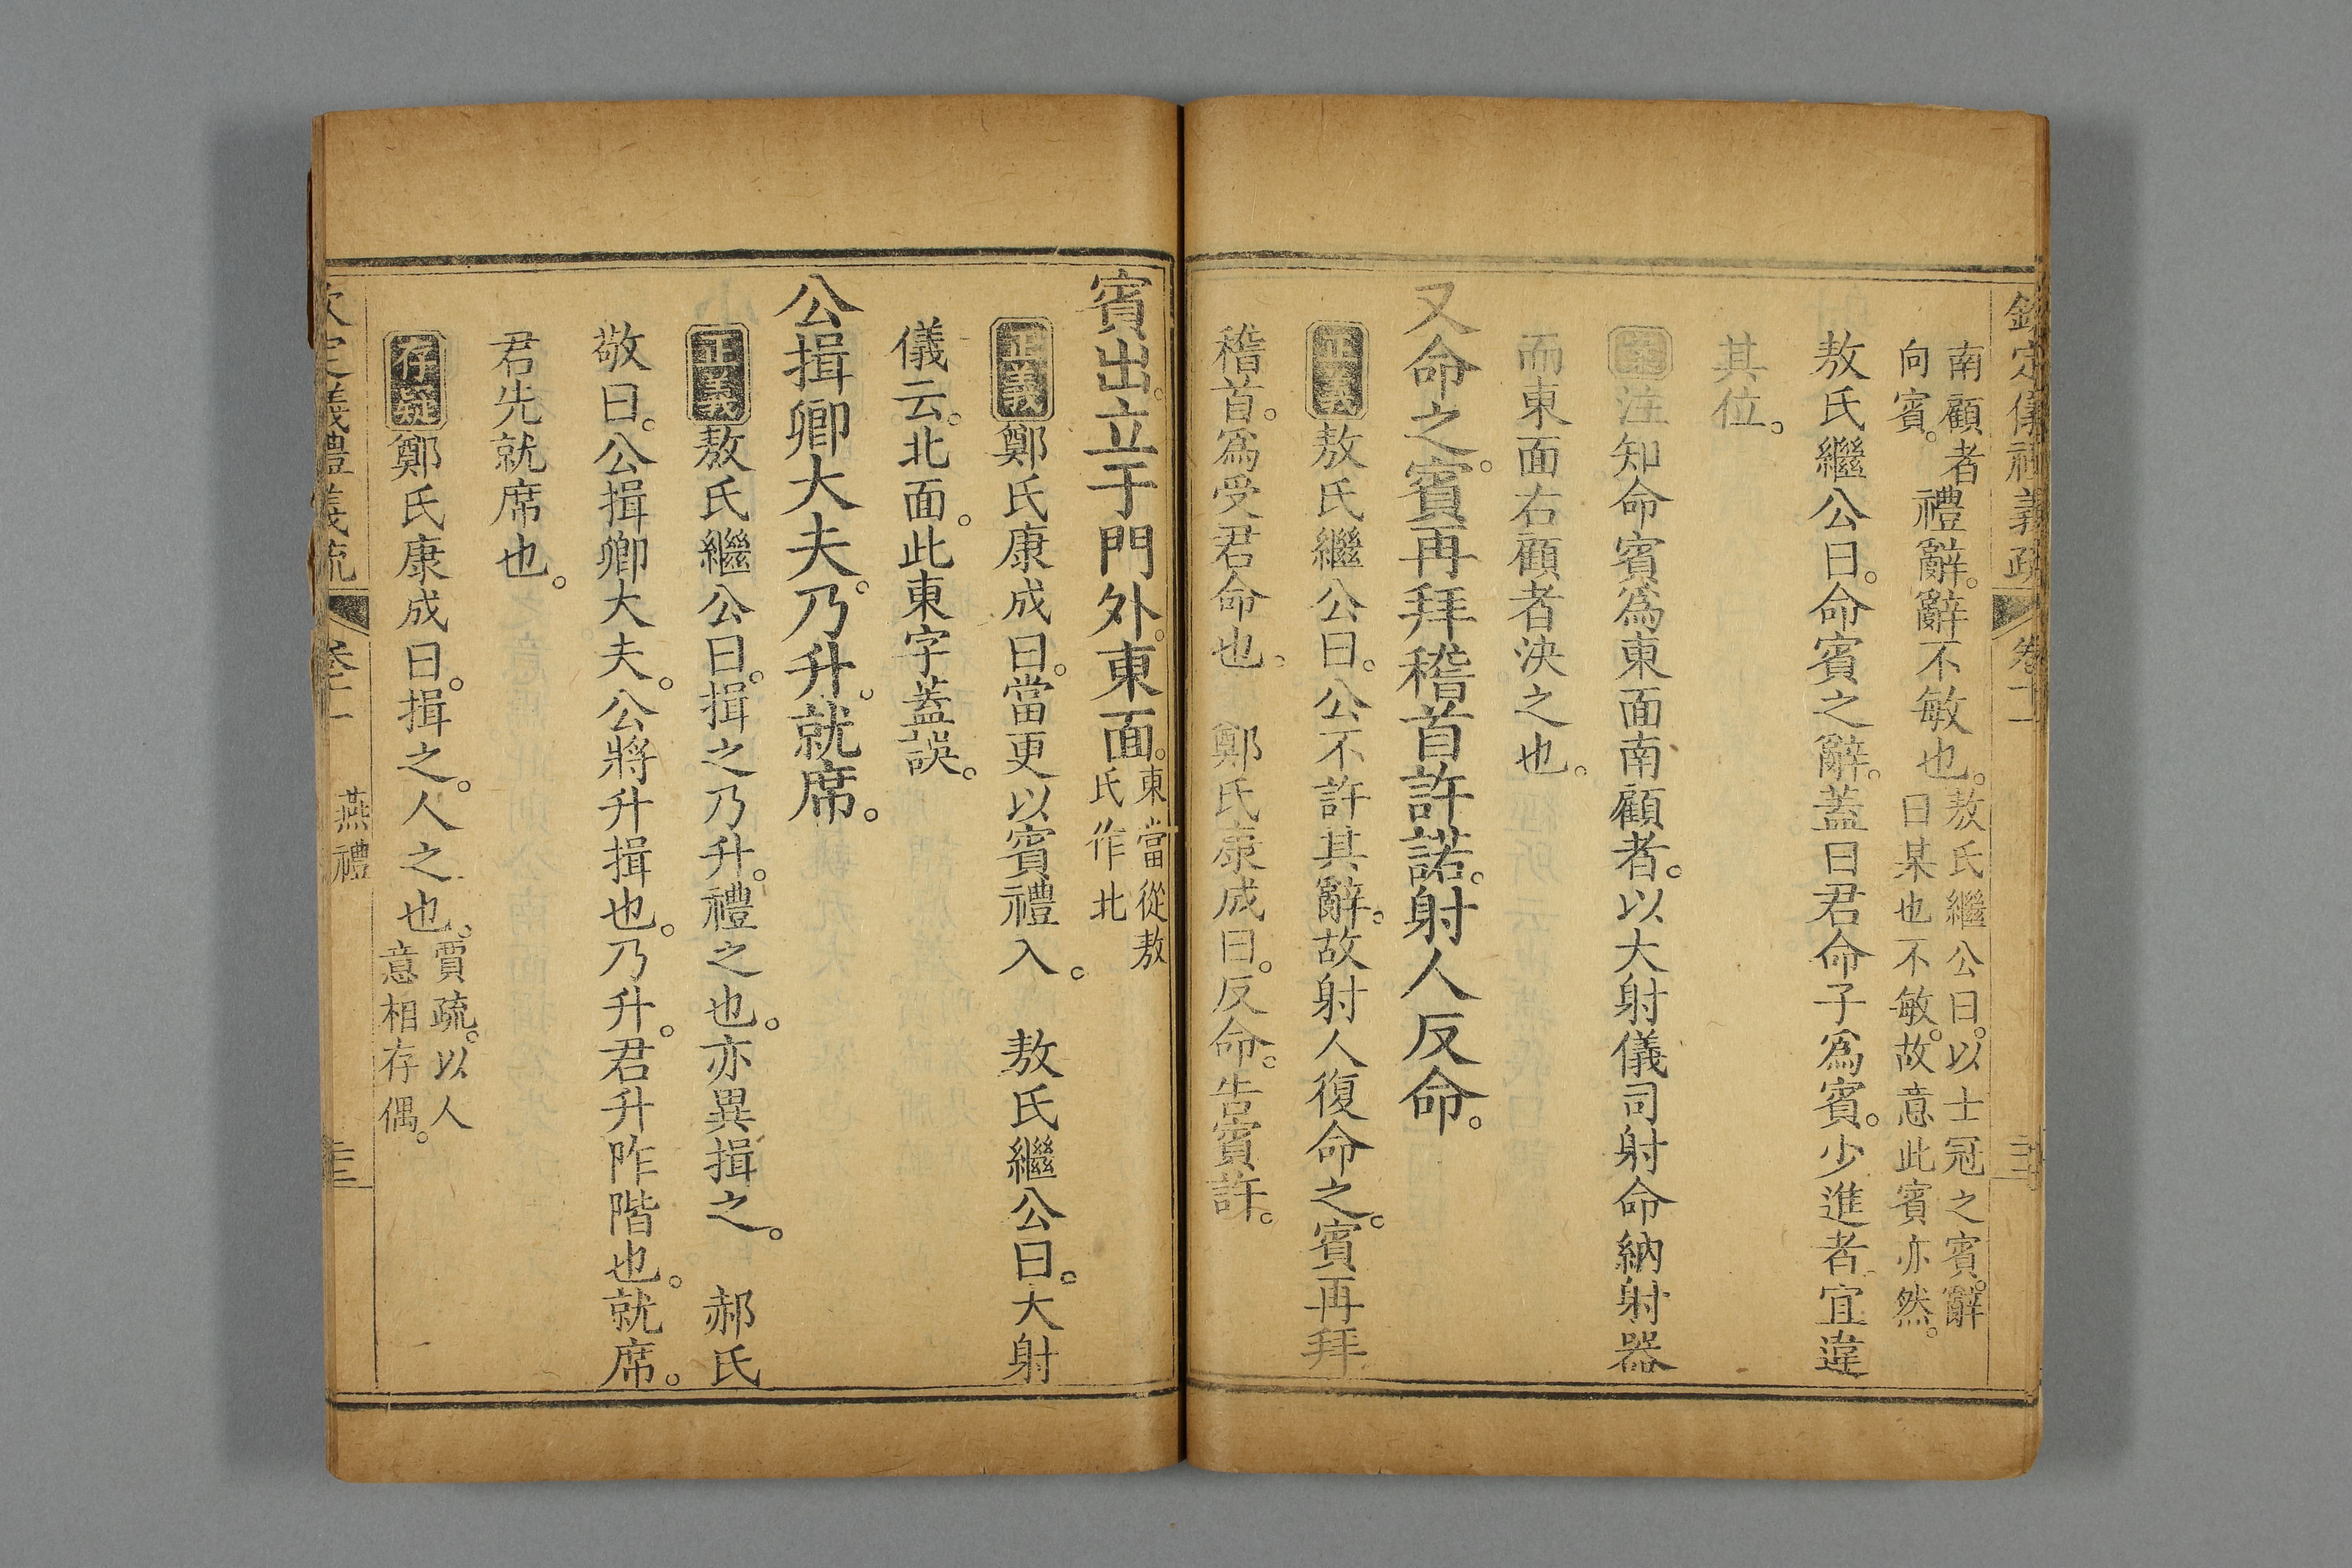 欽定儀禮義疏 卷十一
南顧者
向賓。
禮辭。辭不敏也。
敖氏繼公曰。以士冠之賓。辭
曰某也不敏。故意此賓亦然。
敖氏繼公曰。命賓之辭。蓋曰君命子爲賓。少進者宜違
其位。
案注知命賓爲東面南顧者。以大射儀司射命納射器
而東面右顧者決之也。
又命之。賓再拜稽首許諾。射人反命。
正義敖氏繼公曰。公不許其辭。故射人復命之。賓再拜
稽首。爲受君命也。 鄭氏康成曰。反命。告賓許。
賓出。立于門外。東面。
東當從敖
氏作北
正義鄭氏康成曰。當更以賓禮入。 敖氏繼公曰。大射
儀云。北面。此東字蓋誤。
公揖卿大夫。乃升。就席。
正義敖氏繼公曰。揖之乃升。禮之也。亦異揖之。 郝氏
敬曰。公揖卿大夫。公將升揖也。乃升。君升阼階也。就席。
君先就席也。
存疑鄭氏康成曰。揖之。人之也。
賈疏。以人
意相存偶。
欽定義禮義疏 卷十一 燕禮